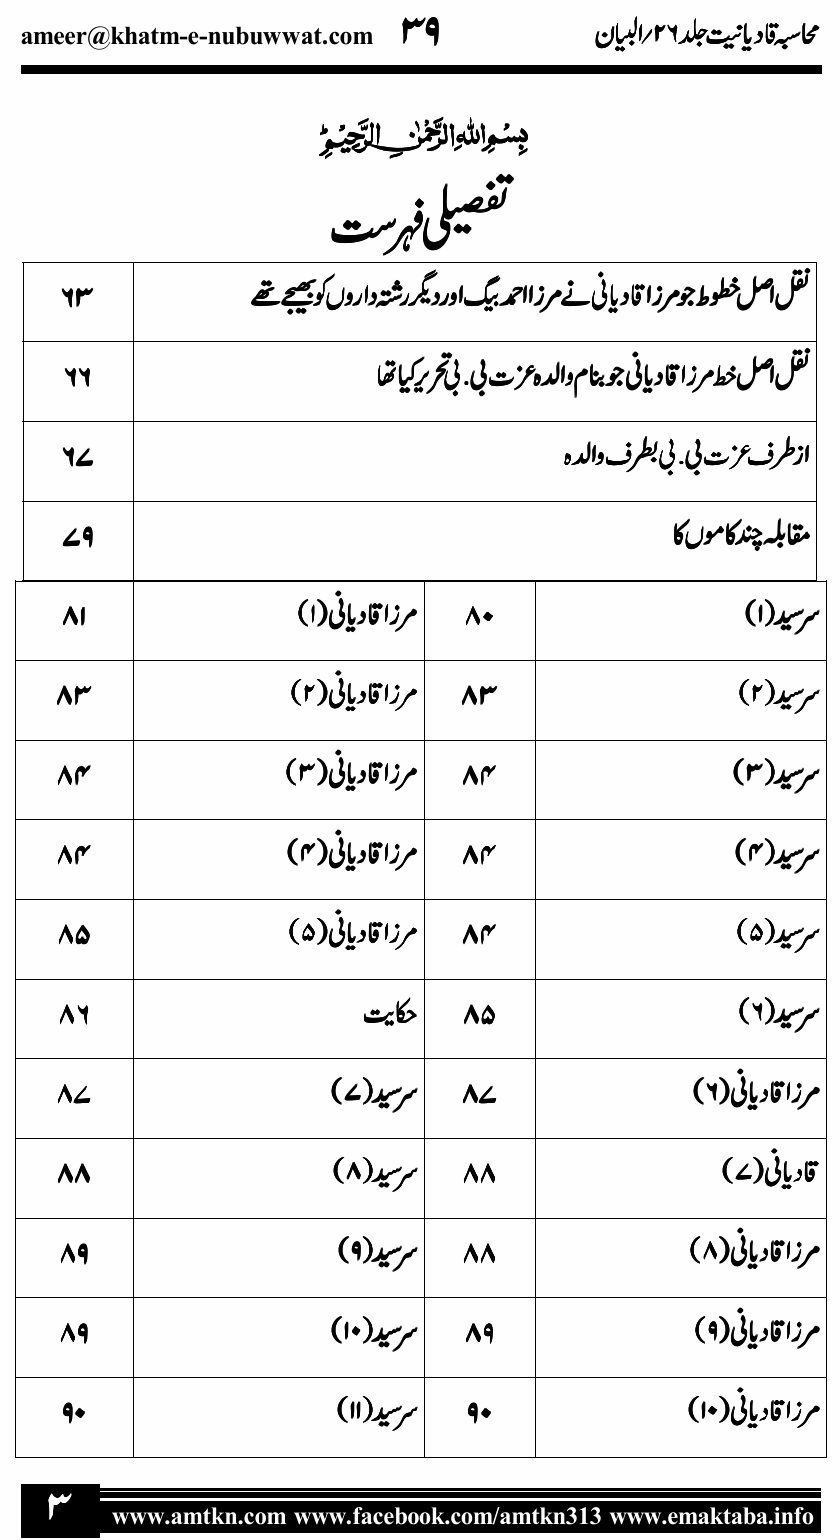 محاسبہ قادیانیت جلد ۲۶/البیان ۳۹ ameer@khatm-e-nubuwwat.com
بِسْمِ اللّٰهِ الرَّحْمٰنِ الرَّحِيْمِ
تفصیلی فہرست
نقل اصل خطوط جو مرزا قادیانی نے مرزا احمد بیگ اور دیگر رشتہ داروں کو بھیجے تھے ۶۳
نقل اصل خط مرزا قادیانی جو بنام والدہ عزت بی۔ بی تحریر کیا تھا ۶۶
از طرف عزت بی۔ بی بطرف والدہ ۶۷
مقابلہ چند کاموں کا ۷۹
سرسید (۱) ۸۰ مرزا قادیانی (۱) ۸۱
سرسید (۲) ۸۳ مرزا قادیانی (۲) ۸۳
سرسید (۳) ۸۴ مرزا قادیانی (۳) ۸۴
سرسید (۴) ۸۴ مرزا قادیانی (۴) ۸۴
سرسید (۵) ۸۴ مرزا قادیانی (۵) ۸۵
سرسید (۶) ۸۵ حکایت ۸۶
مرزا قادیانی (۶) ۸۷ سرسید (۷) ۸۷
قادیانی (۷) ۸۸ سرسید (۸) ۸۸
مرزا قادیانی (۸) ۸۸ سرسید (۹) ۸۹
مرزا قادیانی (۹) ۸۹ سرسید (۱۰) ۸۹
مرزا قادیانی (۱۰) ۹۰ سرسید (۱۱) ۹۰
۳ www.amtkn.com www.facebook.com/amtkn313 www.emaktaba.info